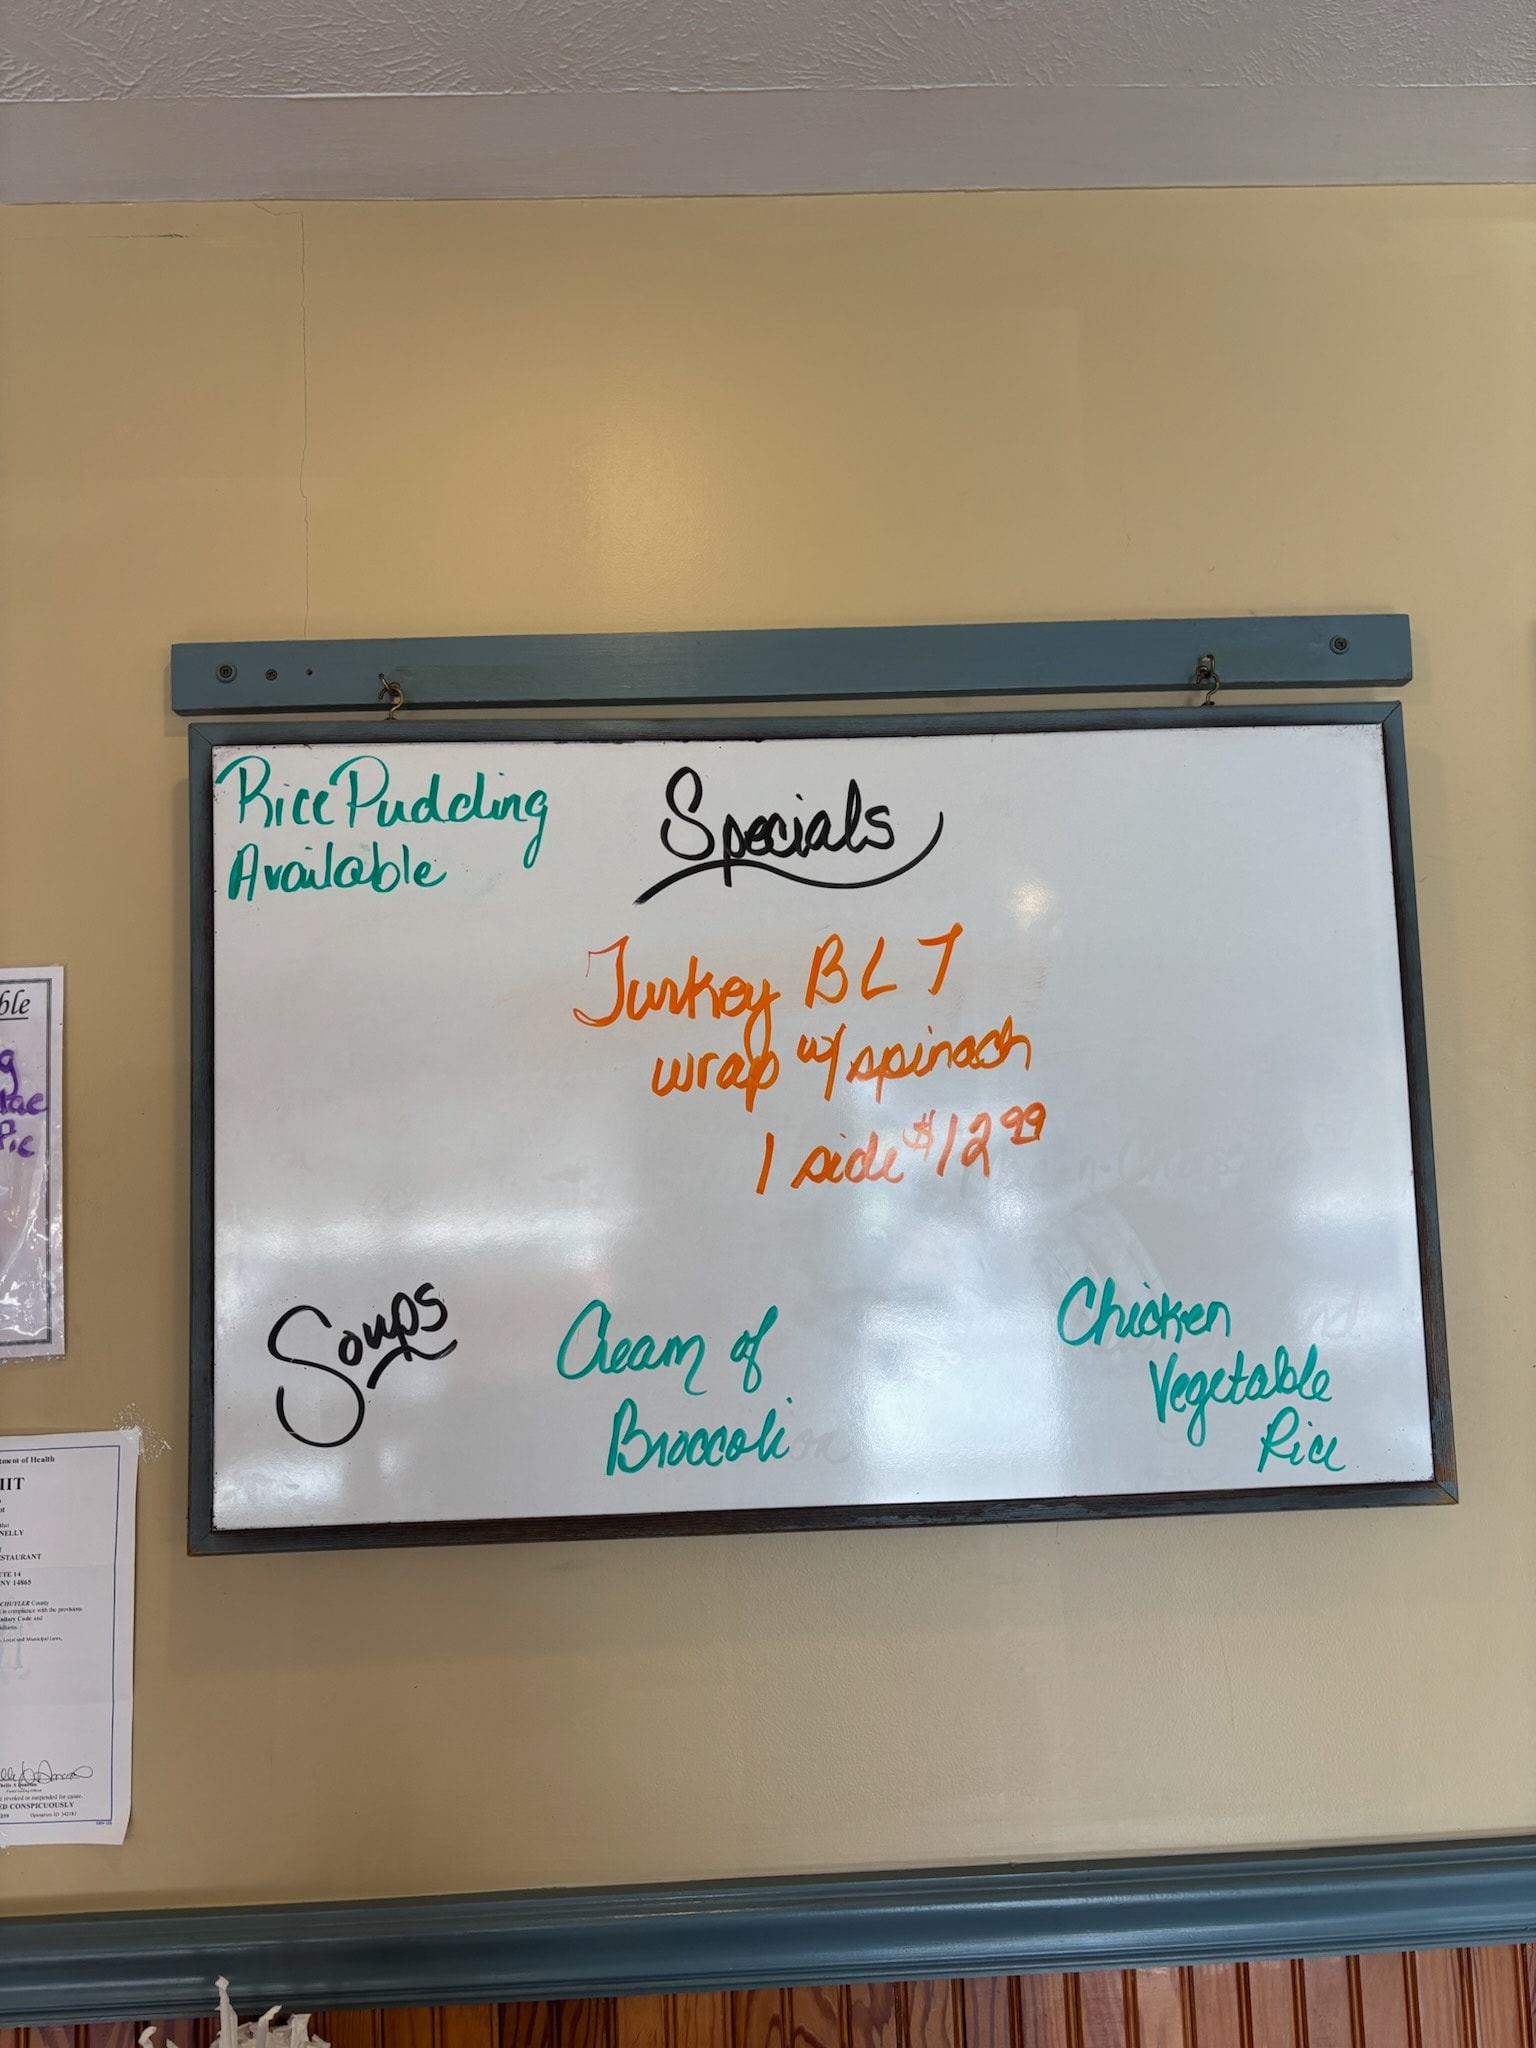 Rice Pudding
Available
Specials
Turkey BLT
wrap w/ spinach
1 side $12.99
Soups
Cream of
Broccoli
Chicken
Vegetable
Rice
ble
g
Pie
tment of Health
IIT
NELLY
ESTAURANT
UTE 14
NY 14865
CHUYLER County
is in compliance with the provisions
anitary Code and
Local and Municipal Laws.
revoked or suspended for cause.
ED CONSPICUOUSLY